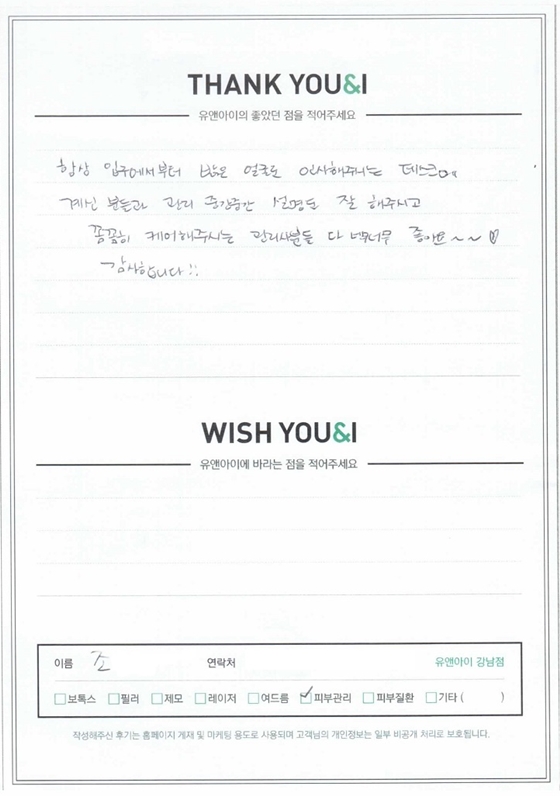 THANK YOU&I
유앤아이의 좋았던 점을 적어주세요
항상 입구에서부터 밝은 얼굴로 인사해주시는 데스크에
계신 분들과 관리 중간중간 설명도 잘 해주시고
꼼꼼히 케어해주시는 관리사분들 다 너무너무 좋아요~~♡
감사합니다!!
WISH YOU&I
유앤아이에 바라는 점을 적어주세요
이름 조 연락처 유앤아이 강남점
보톡스 필러 제모 레이저 여드름 피부관리 피부질환 기타 ( )
작성해주신 후기는 홈페이지 게재 및 마케팅 용도로 사용되며 고객님의 개인정보는 일부 비공개 처리로 보호됩니다.